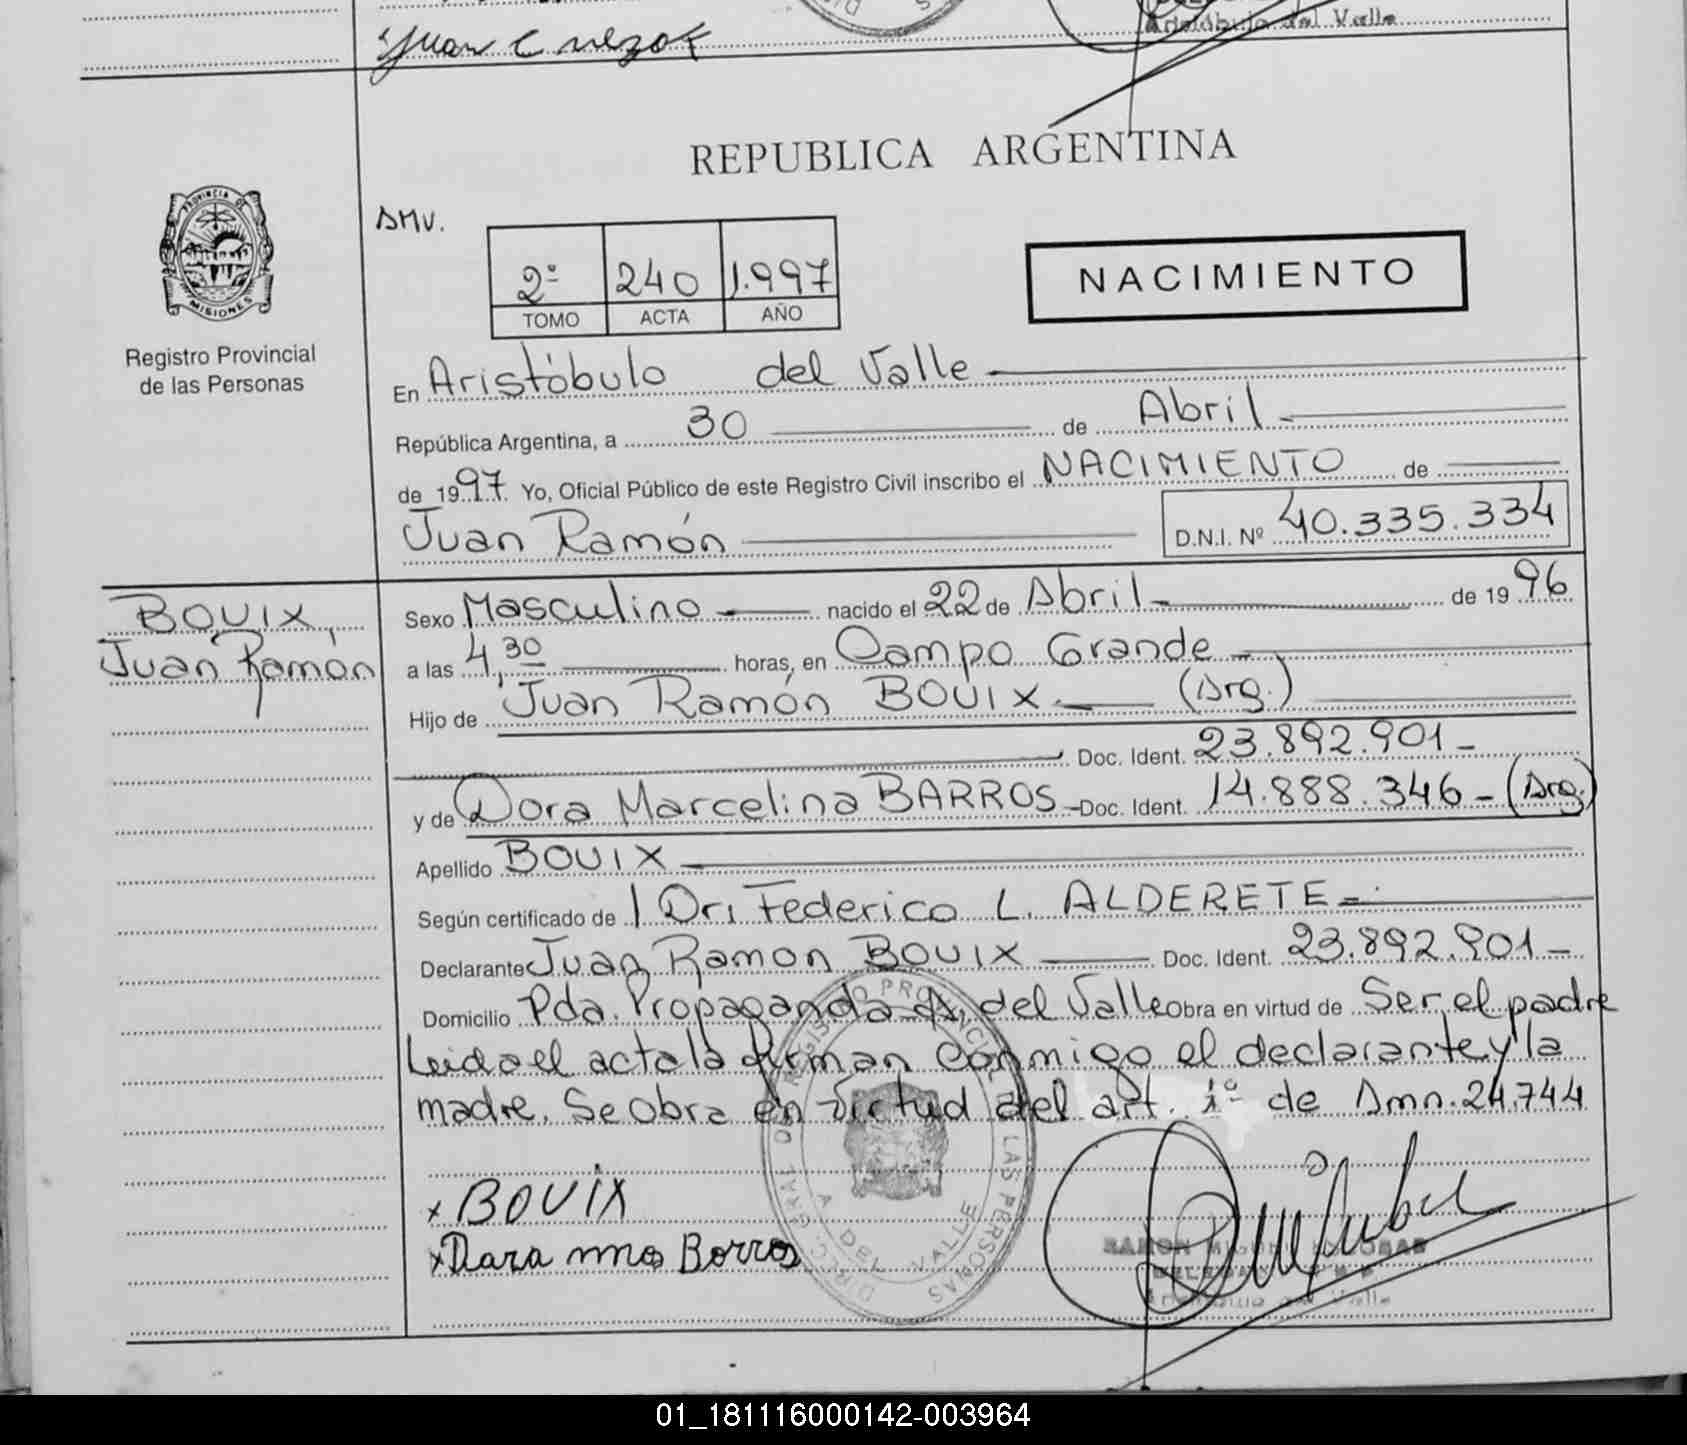 Aristóbulo del Valle
Juan C
REPUBLICA ARGENTINA
PROVINCIA DE MISIONES
Registro Provincial
de las Personas
AMV.
2º 240 1.997
TOMO ACTA AÑO
NACIMIENTO
En Aristóbulo del Valle
República Argentina, a 30 de Abril
de 1997. Yo, Oficial Público de este Registro Civil inscribo el NACIMIENTO de
Juan Ramón D.N.I. Nº 40.335.334
BOUIX,
Juan Ramón
Sexo Masculino nacido el 22 de Abril de 1996
a las 4,30 horas, en Campo Grande
Hijo de Juan Ramón BOUIX (Arg.)
Doc. Ident. 23.892.901-
y de Dora Marcelina BARROS - Doc. Ident. 14.888.346 - (Arg.)
Apellido BOUIX
Según certificado de / Dr. Federico L. ALDERETE
Declarante Juan Ramon BOUIX Doc. Ident. 23.892.901-
Domicilio Pda. Propaganda A. del Valle Obra en virtud de Ser el padre
Leida el acta la firman conmigo el declarante y la
madre. Se obra en virtud del art. 1º de Amn. 24.744
x BOUIX
x Dara ma Borros
DIREC. GRAL. DE REGISTRO PROVINCIAL DE LAS PERSONAS
A. DEL VALLE
RAMON
Aristóbulo del Valle
01_181116000142-003964